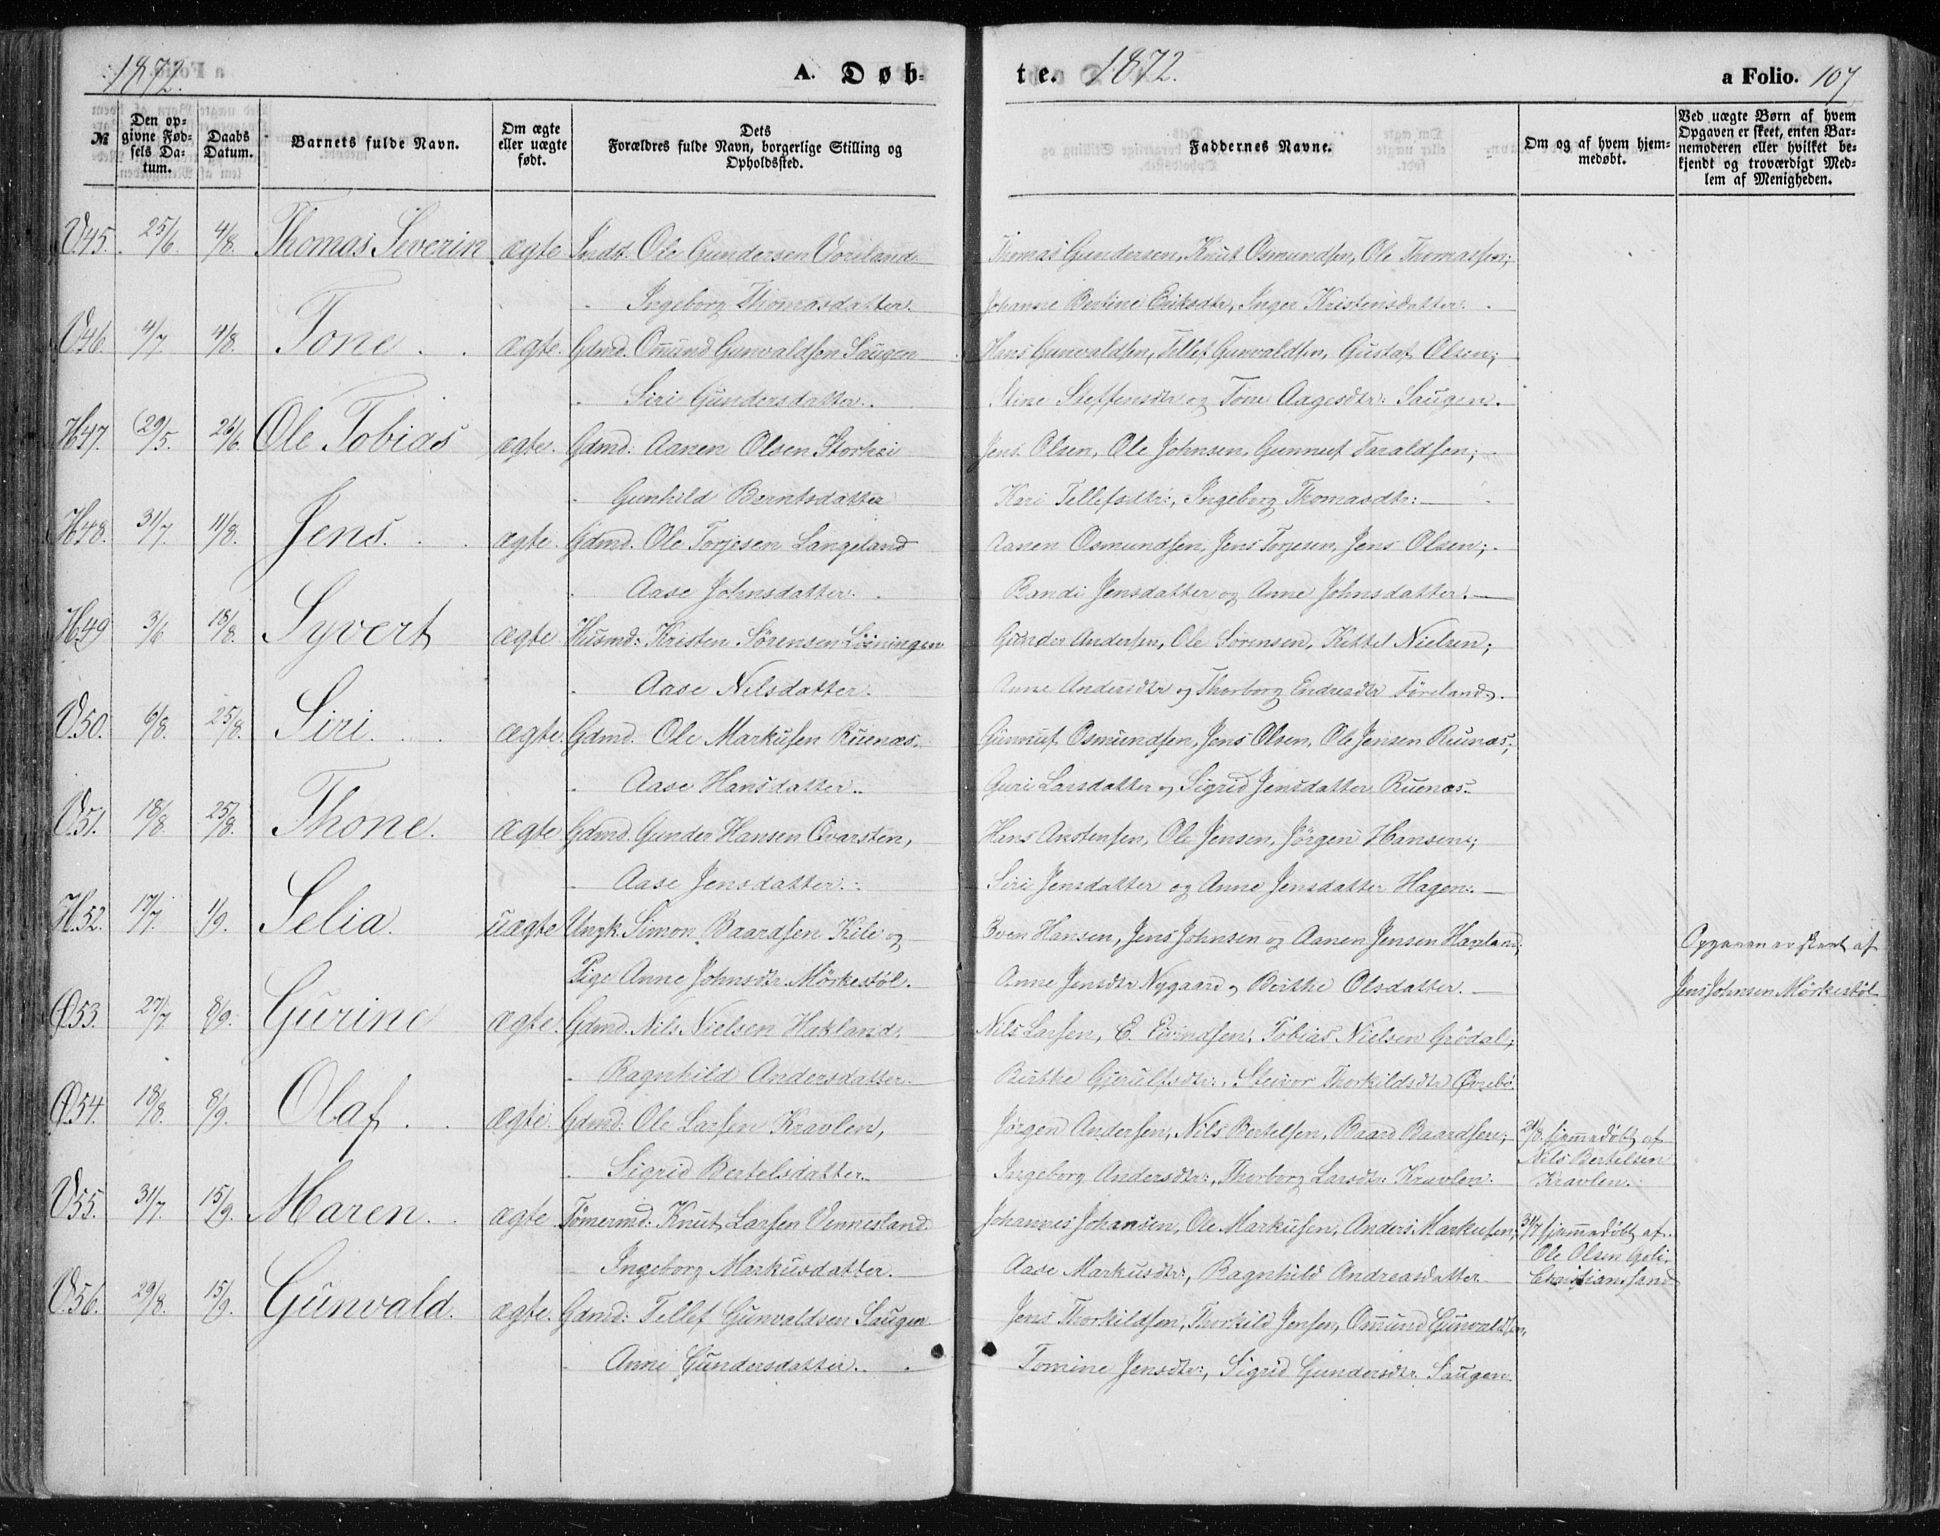 1872. A. Døb- te. 1872. a Folio. 107
№ Den opgivne Fødsels Datum. Daabs Datum. Barnets fulde Navn. Om ægte eller uægte født. Dets Forældres fulde Navn, borgerlige Stilling og Opholdssted. Faddernes Navne. Om og af hvem hjemmedøbt. Ved uægte Børn af hvem Opgaven er skeet, enten Barnemoderen eller hvilket bekjendt og troværdigt Medlem af Menigheden.
V45. 25/6. 4/8. Thomas Severin ægte Indst. Ole Gundersen Voreland Thomas Gundersen, Knut Osmundsen, Ole Thomassen;
Ingeborg Thomasdatter. Johanne Bertine Eriksdtr, Inger Kristensdatter.
V46. 4/7 4/8. Tone ægte. Gdmd. Omund Gunvaldsen Saugen Hans Gunvaldsen, Tellef Gunvaldsen, Gustaf Olsen;
Siri Gundersdatter. Stine Steffensdtr og Tone Aagesdtr: Saugen.
H47. 29/5. 26/6. Ole Tobias ægte. Gdmd: Aanen Olsen Storhei Jens Olsen, Ole Johnsen, Gunnuf Taraldsen;
Gunhild Berntsdatter Kari Tellefsdtr:, Ingeborg Thomasdtr:
H48. 31/7 11/8. Jens. ægte. Gdmd. Ole Torjesen Langeland Aanen Osmundsen, Jens Torjesen, Jens Olsen;
Aase Johnsdatter. Randi Jensdatter og Anne Johnsdatter.
H49 3/6 18/8. Syvert ægte Husmd: Kristen Sørensen Løiningen Gunder Andersen, Ole Sørensen, Kittel Nielsen;
Aase Nilsdatter. Anne Andersdtr og Thorborg Endresdtr Føreland.
V50. 6/8. 25/8. Siri. ægte. Gdmd. Ole Markusen Ruenæs. Gunnuf Osmundsen, Jens Olsen, Ole Jensen Ruenæs;
Aase Hansdatter. Guri Larsdatter og Sigrid Jensdatter Ruenæs.
V51. 18/8. 25/8. Thone. ægte Gdmd. Gunder Hansen Qvarsten, Hans Anstensen, Ole Jensen, Jørgen Hansen;
Aase Jensdatter. Siri Jensdatter og Anne Jensdatter Hagen.
H52. 17/7. 1/9. Selia. uægte Ungk. Simon Baardsen Kile og Even Hansen, Jens Johnsen og Aanen Jensen Haxland; Opgaven er skeet af
Pige Anne Johnsdtr Mørkestøl. Anne Jensdtr Nygaard og Berthe Olsdatter. Jens Johnsen Mørkestøl
Ø53. 27/7 8/9. Gurine ægte. Gdmd. Nils Nielsen Hokland. Nils Larsen, E. Evindsen, Tobias Nielsen Grødal;
Ragnhild Andersdatter. Berthe Gjerulfsdtr:, Steivor Thorkildsdtr Øvrebø.
Ø54. 18/8. 8/9. Olaf. ægte. Gdmd. Ole Larsen Kravlen, Jørgen Andersen, Nils Bertelsen, Baard Baardsen; 21/8 hjemmedøbt af
Nils Bertelsen
Sigrid Bertelsdatter. Ingeborg Andersdtr:, Thorborg Larsdtr: Kravlen. Kravlen.
V55. 31/7. 15/9. Maren. ægte Tømermd: Knut Larsen Vennesland. Johannes Johansen, Ole Markusen, Anders Markusen; 31/7 hjemmedøbt af
Ole Olsen
Ingeborg Markusdatter. Aase Markusdtr:, Ragnhild Andreasdatter Christianssand
V56. 29/8. 15/9. Gunvald. ægte. Gdmd: Tellef Gunvaldsen Saugen Jens Thorkildsen, Thorkild Jensen, Osmund Gunvaldsen,
Anne Gundersdatter. Tomine Jensdtr:, Sigrid Gundersdtr Saugen.